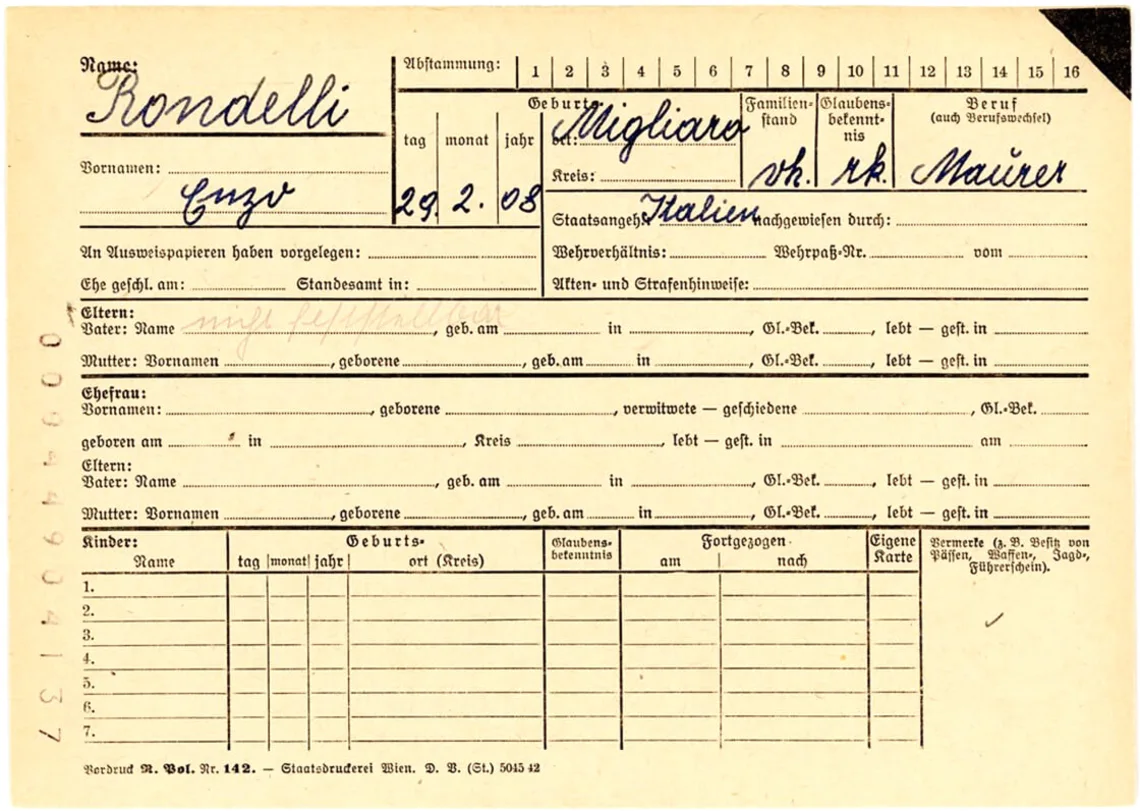 Name: Abstammung: 1 2 3 4 5 6 7 8 9 10 11 12 13 14 15 16
Rondelli
Geburts- Familienstand Glaubensbekenntnis Beruf
(auch Berufswechsel)
tag monat jahr ort: Migliaro
Vornamen: Kreis: vh. rk. Maurer
Enzo 29. 2. 08
Staatsangeh.: Italien nachgewiesen durch:
An Ausweispapieren haben vorgelegen: Wehrverhältnis: Wehrpaß-Nr. vom
Ehe geschl. am: Standesamt in: Akten- und Strafenhinweise:
Eltern:
Vater: Name nicht feststellbar, geb. am in , Gl.-Bek. , lebt — gest. in
Mutter: Vornamen , geborene , geb. am in , Gl.-Bek. , lebt — gest. in
Ehefrau:
Vornamen: , geborene , verwitwete — geschiedene , Gl.-Bek.
geboren am in , Kreis , lebt — gest. in am
Eltern:
Vater: Name , geb. am in , Gl.-Bek. , lebt — gest. in
Mutter: Vornamen , geborene , geb. am in , Gl.-Bek. , lebt — gest. in
Kinder: Geburts- Glaubensbekenntnis Fortgezogen Eigene Karte Vermerke (z. B. Besitz von
Name tag monat jahr ort (Kreis) am nach Pässen, Waffen-, Jagd-,
Führerschein).
1.
2.
3.
4.
5.
6.
7.
Vordruck R. Pol. Nr. 142. — Staatsdruckerei Wien. D. V. (St.) 5045 42